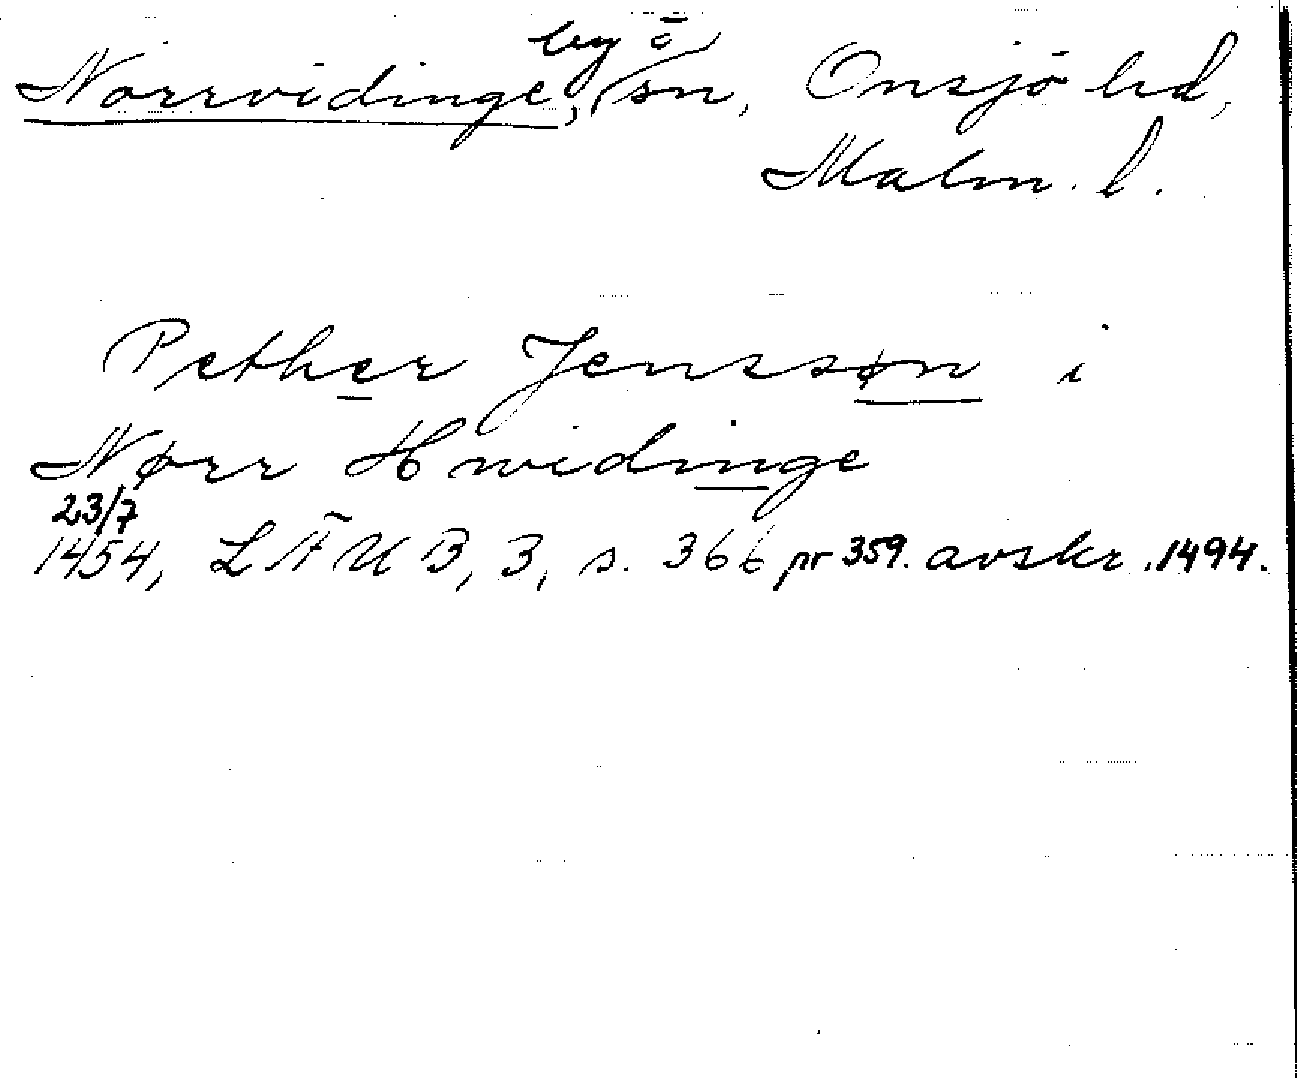 Norrvidinge, by o sn, Onsjö hd,
Malm. l.
Pether Jenssøn i
Nørr Hwidinge
23/7
1454, LÄUB, 3, s. 366 nr 359. avskr. 1494.